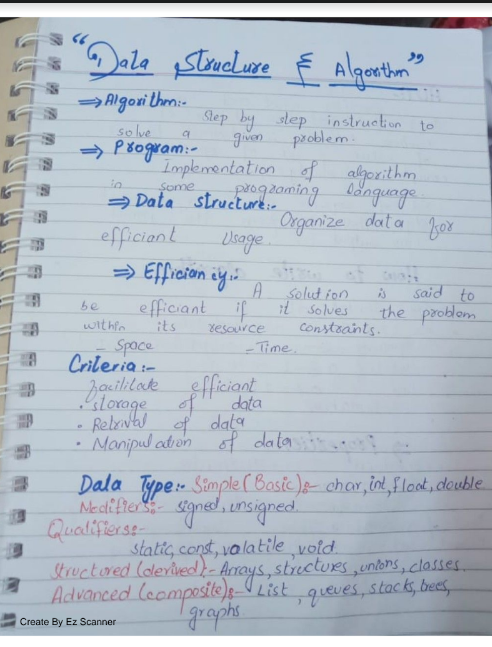 "Data Structure & Algorithm"
⇒ Algorithm:-
Step by step instruction to
solve a given problem.
⇒ Program:-
Implementation of algorithm
in some programing language
⇒ Data structure:-
Organize data for
efficiant Usage.
⇒ Efficiancy:-
A solution is said to
be efficiant if it solves the problem
within its resource constraints.
- Space - Time.
Criteria:-
Facilitate efficiant
• storage of data
• Retrival of data
• Manipulation of data
Data Type:- Simple(Basic):- char, int, float, double
Modifiers:- signed, unsigned.
Qualifiers:-
static, const, volatile, void.
Structured (derived):- Arrays, structures, unions, classes.
Advanced (composite):- List, queues, stacks, trees,
graphs
Create By Ez Scanner